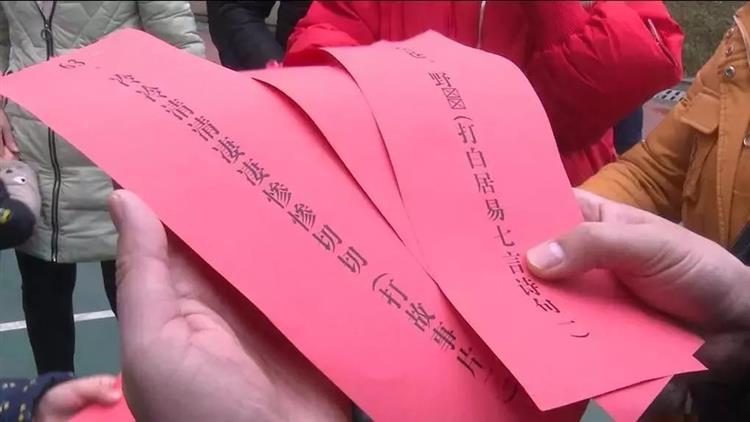 63、冷冷清清凄凄惨惨切切(打故事片一)
野☒☒(打白居易七言诗句一)